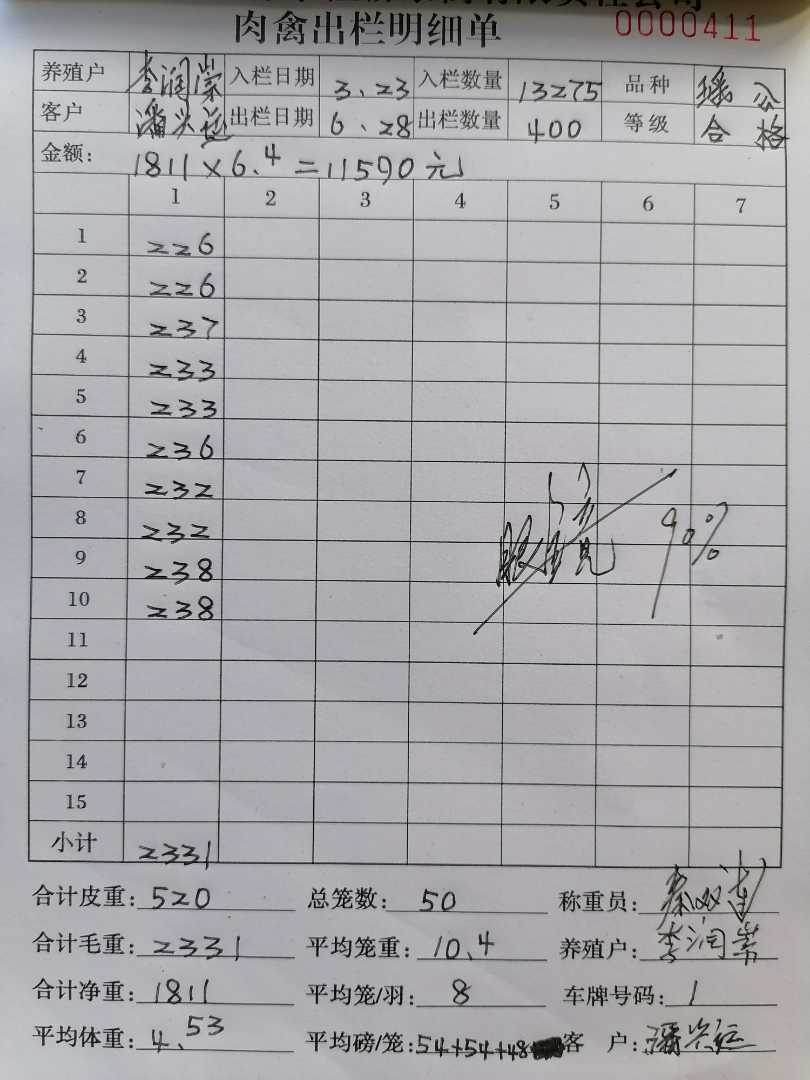 肉禽出栏明细单 0000411
养殖户 李润崇 入栏日期 3.23 入栏数量 13275 品种 瑶公
客户 潘兴运 出栏日期 6.28 出栏数量 400 等级 合格
金额: 1811×6.4=11590元
1 2 3 4 5 6 7
1 226
2 226
3 237
4 233
5 233
6 236
7 232
8 232
9 238 90%
10 238
11
12
13
14
15
小计 2331
合计皮重: 520 总笼数: 50 称重员:
合计毛重: 2331 平均笼重: 10.4 养殖户: 李润崇
合计净重: 1811 平均笼/羽: 8 车牌号码: 1
平均体重: 4.53 平均磅/笼: 54+54+48 客户: 潘兴运